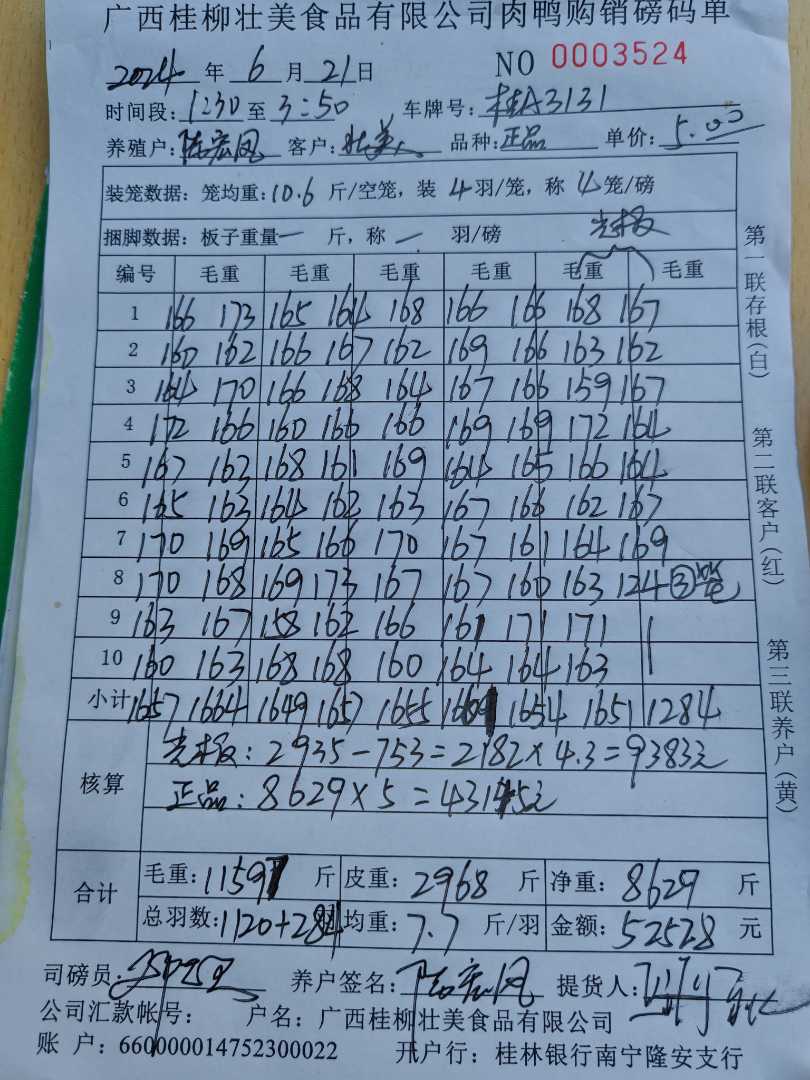 广西桂柳壮美食品有限公司肉鸭购销磅码单
2024 年 6 月 21 日 NO 0003524
时间段: 1230 至 3:50 车牌号: 桂A3131
养殖户: 陆宏凤 客户: 壮美 品种: 正品 单价: 5.00
装笼数据: 笼均重: 10.6 斤/空笼, 装 4 羽/笼, 称 4 笼/磅
捆脚数据: 板子重量 一 斤, 称 一 羽/磅 光木板
编号 毛重 毛重 毛重 毛重 毛重 毛重
1 166 173 165 164 168 166 166 168 167
2 160 162 166 167 162 169 166 163 162
3 164 170 166 168 164 167 166 159 167
4 172 166 160 166 166 169 169 172 164
5 167 163 168 161 169 164 165 166 164
6 165 163 164 162 163 167 166 162 167
7 170 169 165 166 170 167 161 164 169
8 170 168 169 173 167 167 160 163 124 ③笼
9 163 167 158 162 166 161 171 171
10 160 163 168 168 160 164 164 163
小计 1657 1664 1649 1657 1655 1654 1651 1284
核算
光木板: 2935-753=2182×4.3=9383元
正品: 8629×5=43145元
合计
毛重: 11597 斤 皮重: 2968 斤 净重: 8629 斤
总羽数: 1120+284 均重: 7.7 斤/羽 金额: 52528 元
司磅员: 养户签名: 陆宏凤 提货人:
公司汇款帐号: 户名: 广西桂柳壮美食品有限公司
账 户: 660000014752300022 开户行: 桂林银行南宁隆安支行
第一联存根(白)
第二联客户(红)
第三联养户(黄)